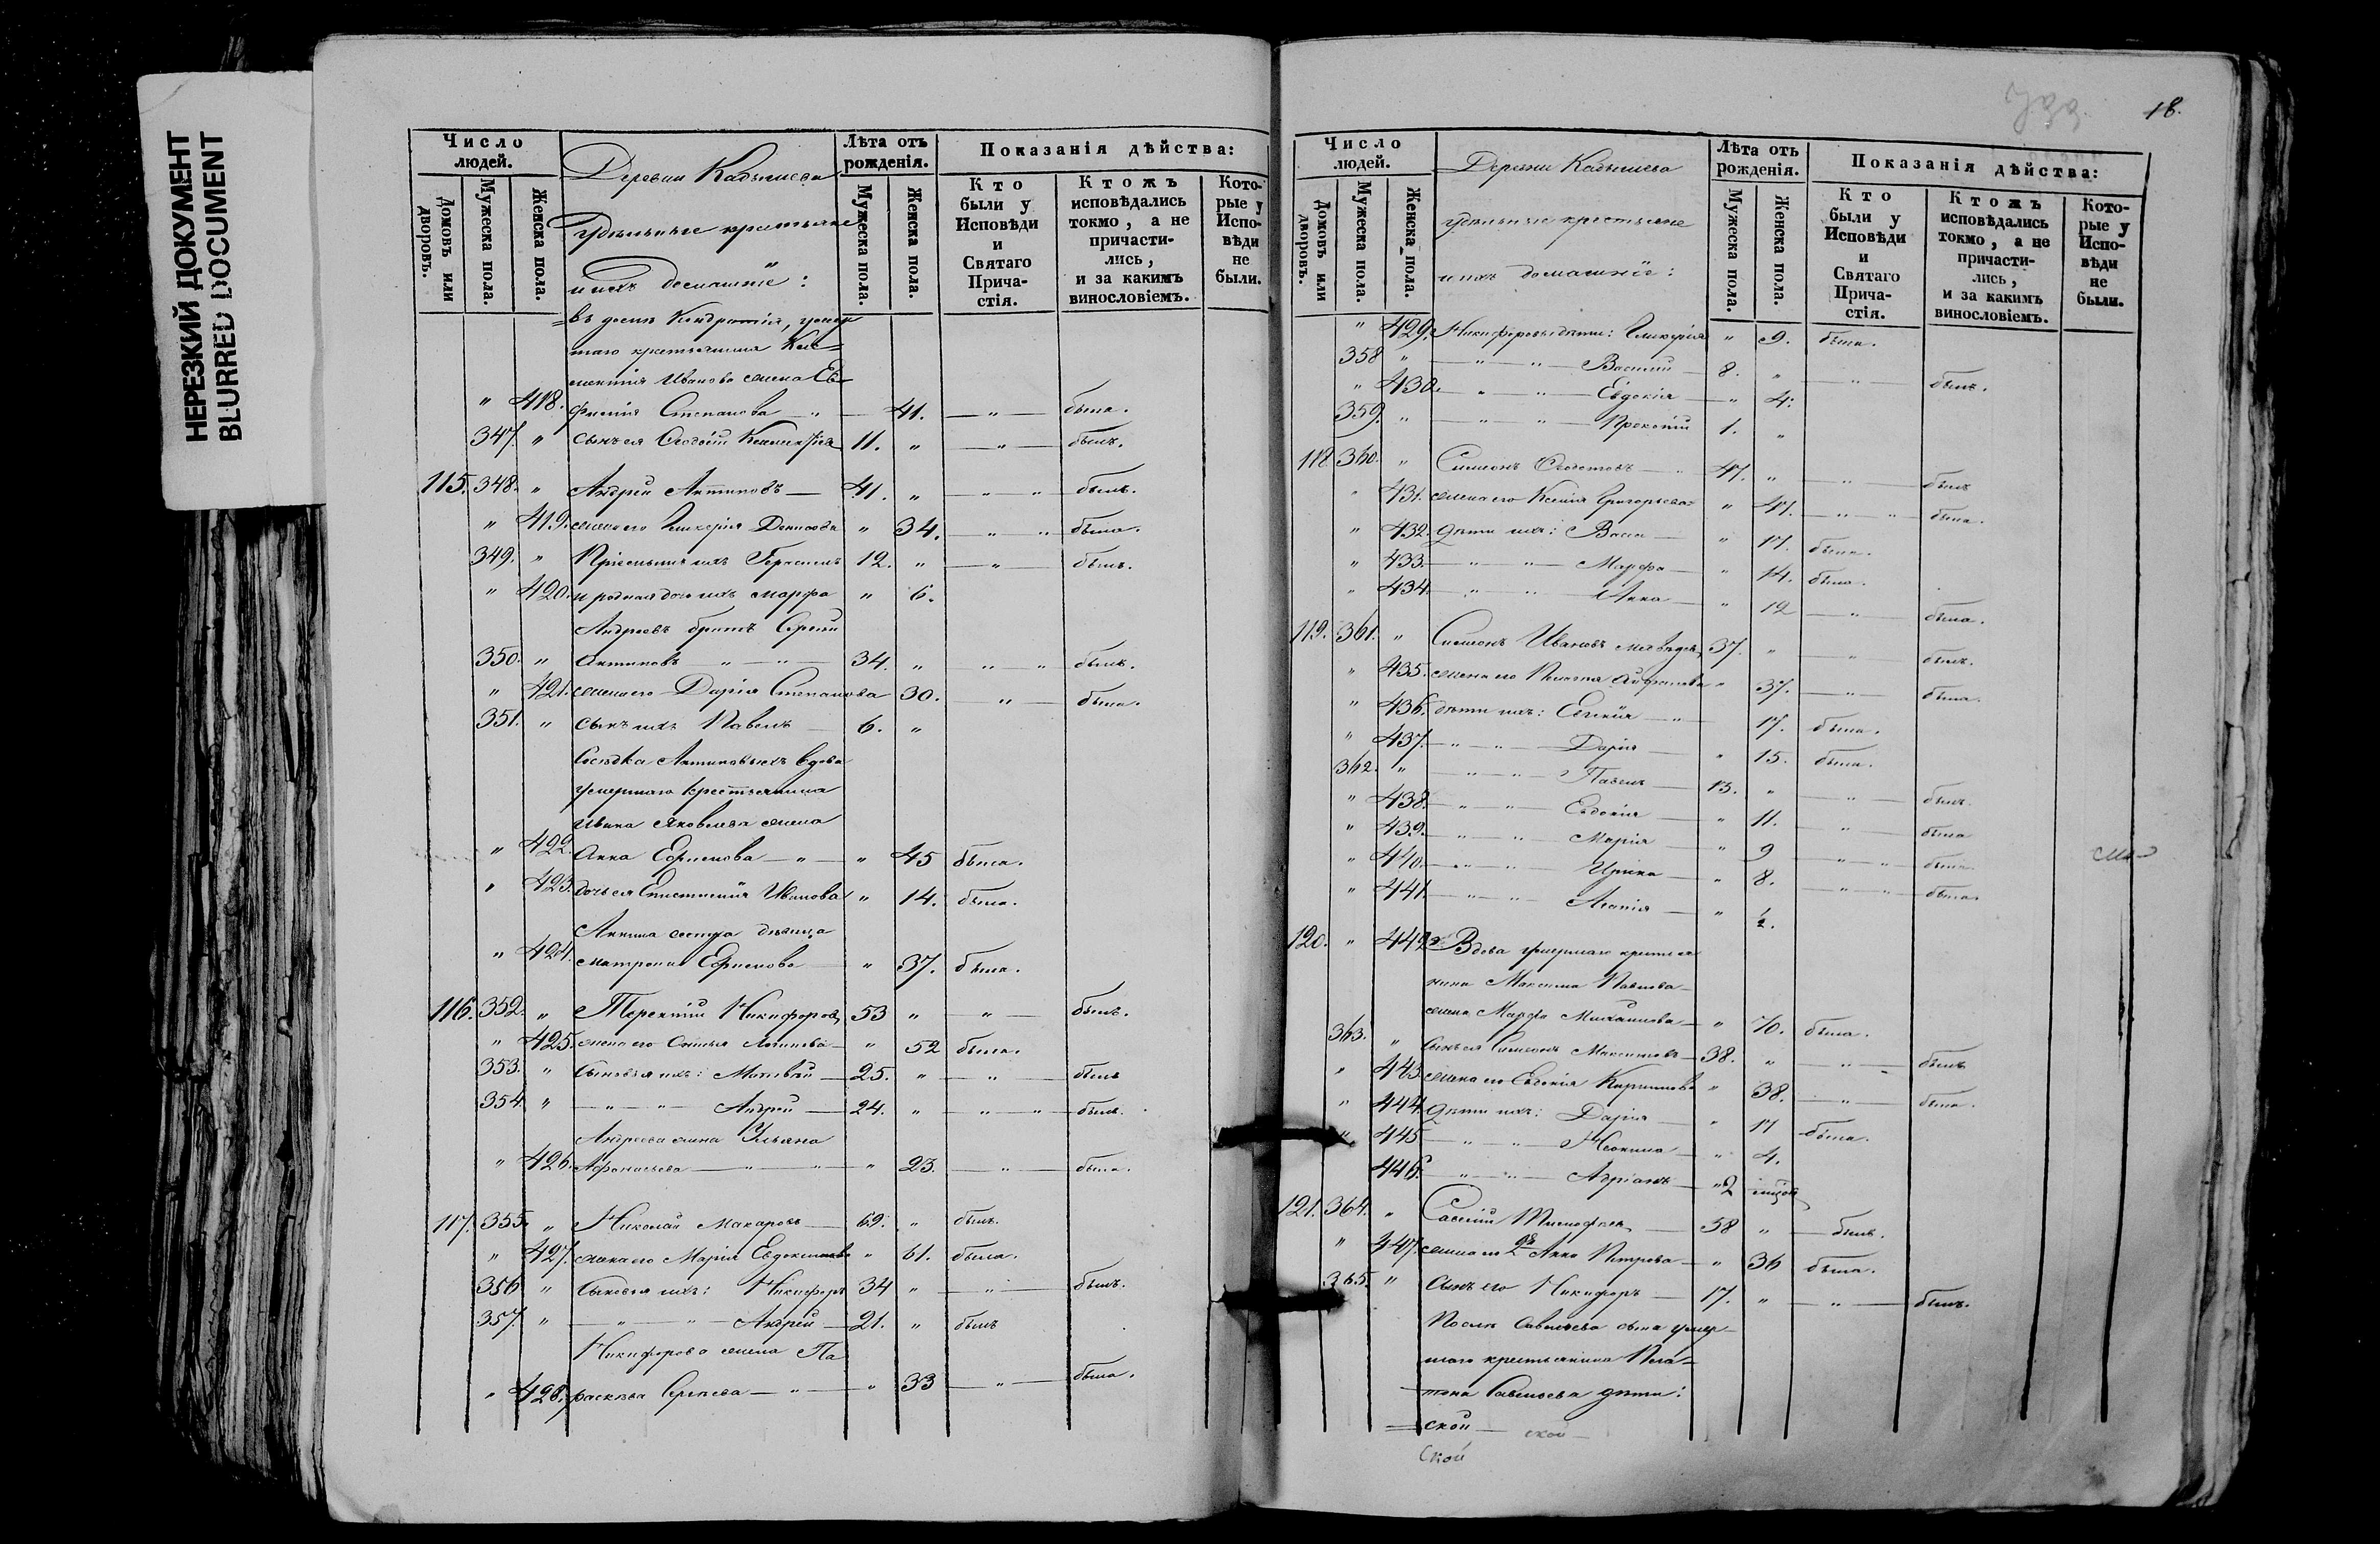 НЕРЕЗКИЙ ДОКУМЕНТ
BLURRED DOCUMENT
Число людей.
Домовъ или дворовъ.
Мужеска пола.
Женска пола.
Деревни Кадышева
удѣльные крестьяне
и ихъ домашніе:
Лѣта отъ рожденія.
Мужеска пола.
Женска пола.
Показанія дѣйства:
Кто были у Исповѣди и Святаго Прича- стія.
Ктожъ исповѣдались токмо, а не причасти- лись, и за какимъ винословіемъ.
Кото- рые у Испо- вѣди не были.
въ домѣ Кондратія, умер
шаго крестьянина
Иванова жена Ев
" 418. фимія Степанова — " — 41. — " — была.
347. " сынъ ея 11. " — " — былъ.
115. 348. " Андрей Антиповъ — 41. " — " " былъ.
" 419. жена его Гликерія Денисова " 34. — " " была.
349. " Пріемышъ ихъ Герасимъ 12. " — " — былъ.
" 420. и родная дочь ихъ Марфа " 6.
Андреевъ братъ Сергѣй
350. " Антиповъ — " — " — 34. " " " былъ.
" 421. жена его Дарія Степанова 30. " была.
351. " сынъ ихъ Павелъ — 6. "
Сосѣдка Антиповыхъ вдова
умершаго крестьянина
Ивана Яковлева жена
" 422. Анна Ефимова — " — " 45 была.
" 423. дочь ея Епистимія Иванова " 14. была.
Аннина сестра дѣвица
" 424. Матрона Ефимова — " 37. была.
116. 352. " Терентій Никифоровъ 53 " — " — былъ.
" 425. жена его — " 52 была.
353. " Сыновья ихъ: Матвѣй — 25. " — " — былъ
354 " — " — " — Андрей — 24. " — " — " былъ.
Андреева жена Ульяна
" 426. Афанасьева — " — " — " 23. — " — была.
117. 355. " Николай Макаровъ — 69. " былъ.
" 427. жена его Марія Евдокимова " 61. была.
356 " Сыновья ихъ: Никифоръ 34 " — " — былъ.
357. " — " — " — Андрей — 21. " былъ
Никифорова жена Па
" 428. раскева Сергѣева — " — " 33 — " — была.
18.
Число людей.
Домовъ или дворовъ.
Мужеска пола.
Женска пола.
Деревни Кадышева
удѣльные крестьяне
и ихъ домашніе:
Лѣта отъ рожденія.
Мужеска пола.
Женска пола.
Показанія дѣйства:
Кто были у Исповѣди и Святаго Прича- стія.
Ктожъ исповѣдались токмо, а не причасти- лись, и за какимъ винословіемъ.
Кото- рые у Испо- вѣди не были.
" 429. Никифоровы дѣти: Гликерія " 9. была.
358 " — " — " — Василій — 8. " — " — былъ.
" 430. — " — " — Евдокія — " 4.
359. " — " — " — Прокопій 1. "
118. 360. " Симеонъ — " 47. " — " — былъ
" 431. жена его Ксенія Григорьева " 47. — " — " была.
" 432. дѣти ихъ: Васса — " 17. была.
" 433. — " — " — Марфа — " 14. была.
" 434. — " — " — Анна — " 12 — " — была.
119. 361. " Симеонъ Ивановъ Медвѣдевъ 37. " — " — былъ.
" 435. жена его Пелагея " 37. — " — была.
" 436. дѣти ихъ: — " — 17. была.
" 437. — " — " — Дарія — " 15. была.
362. " — " — " — Павелъ — 13. " — " — былъ.
" 438. — " — " — Евдокія — " 11. — " — была
" 439. — " — " — Марія — " 9 — " — " была
" 440. — " — " — Ирина — " 8. — " — " была.
" 441. — " — " — Агапія — " ½.
120. " 442. Вдова умершаго крестья
нина Максима Павлова
жена Марфа Михайлова — " 70. была.
363. " Сынъ ея Симеонъ Максимовъ — 38. " — " — былъ
" 443. жена его Евдокія Кириллова " 38. — " — была.
" 444. Дѣти ихъ: Дарія — " 17 была.
" 445 — " — " — Неонила — " 4.
446. — " — " — " 2
121. 364. " Савелій Тимофеевъ — 58 " — былъ.
" 447. жена его 2я Анна Петрова — " 36 была.
365. " Сынъ его Никифоръ — 17. " — " — былъ.
Послѣ Савельева сына умер
шаго крестьянина Пла=
тона Савельева дѣти:
ской — ской —
Ской